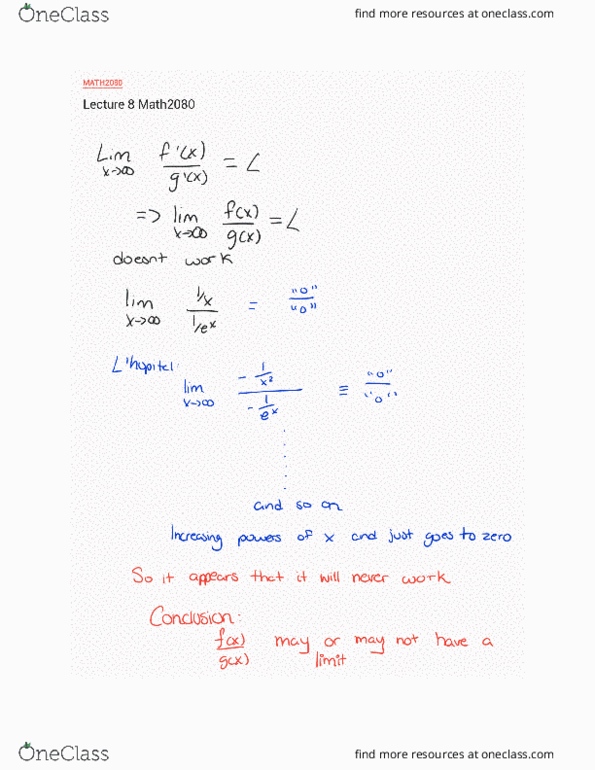 OneClass find more resources at oneclass.com
MATH2080
Lecture 8 Math2080
Lim x→∞ f'(x)/g'(x) = L
=> lim x→∞ f(x)/g(x) = L
doesnt work
lim x→∞ (1/x)/(1/eˣ) = "0"/"0"
L'hopitel: lim x→∞ (-1/x²)/(-1/eˣ) ≡ "0"/"0"
and so on
Increasing powers of x and just goes to zero
So it appears that it will never work
Conclusion:
f(x)/g(x) may or may not have a
limit
OneClass find more resources at oneclass.com